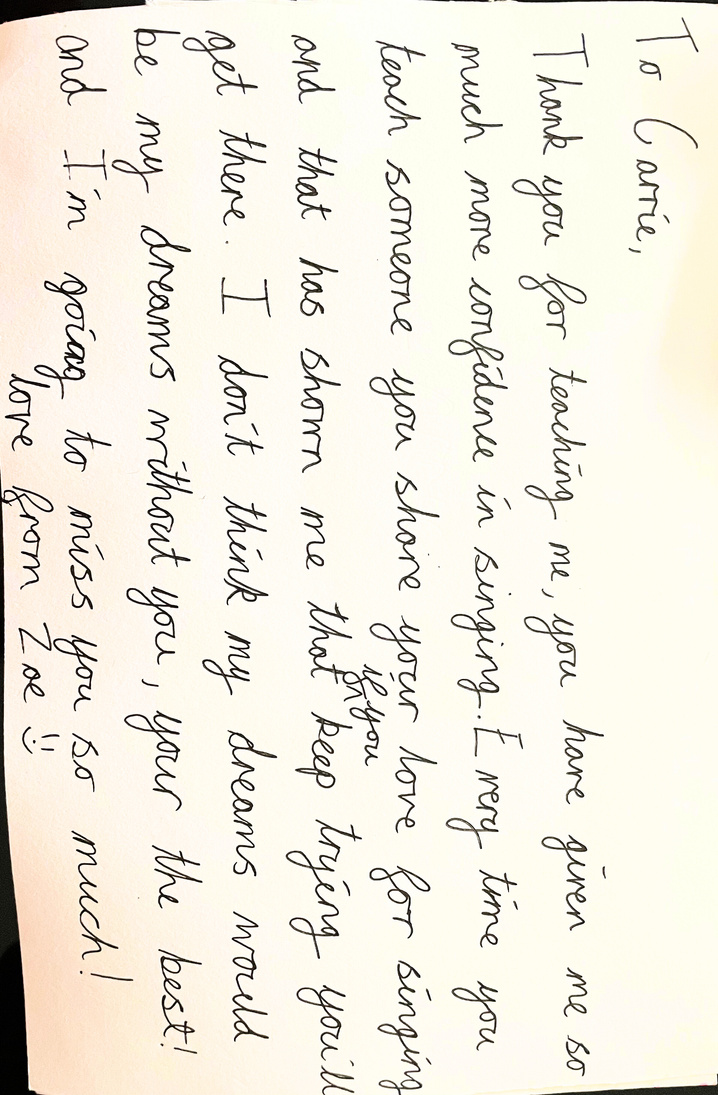 To Carrie,
Thank you for teaching me, you have given me so
much more confidence in singing. Every time you
teach someone you share your love for singing
and that has shown me that if you keep trying you'll
get there. I don't think my dreams would
be my dreams without you, your the best!
and I'm going to miss you so much!
love from Zoe :)